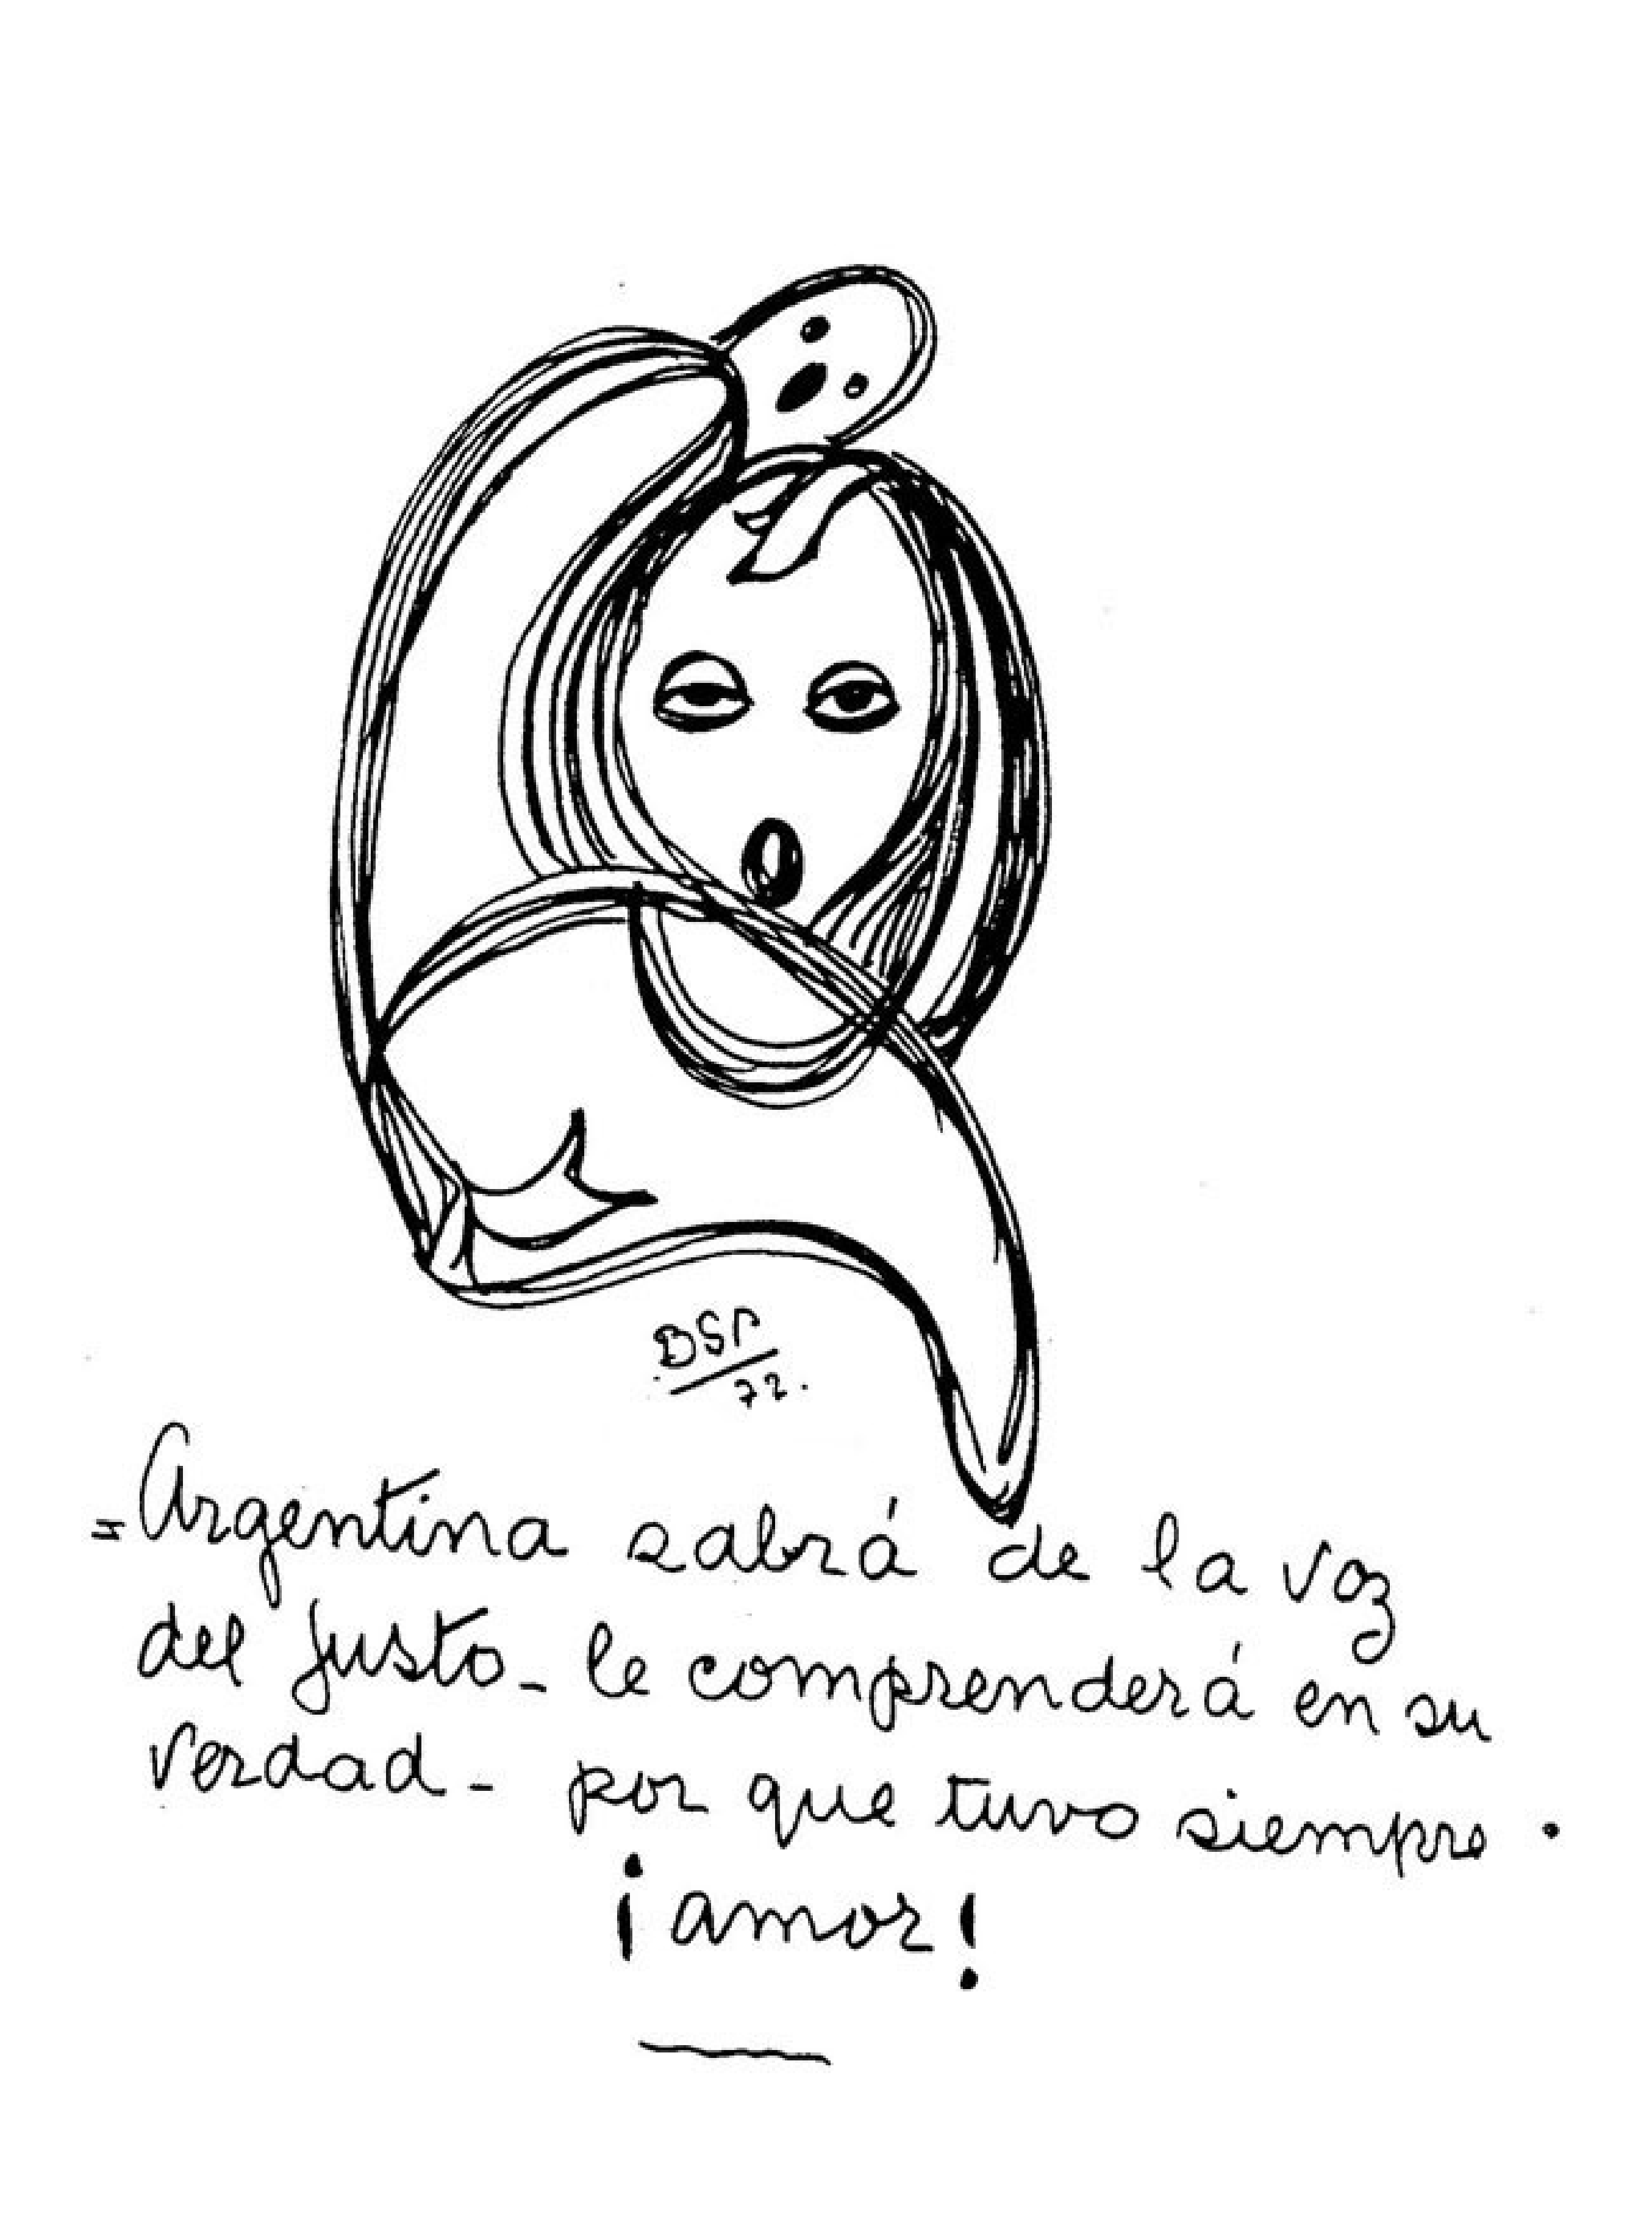 BSP
72.
=Argentina sabrá de la voz
del Justo_ le comprenderá en su
verdad_ por que tuvo siempre.
¡amor!